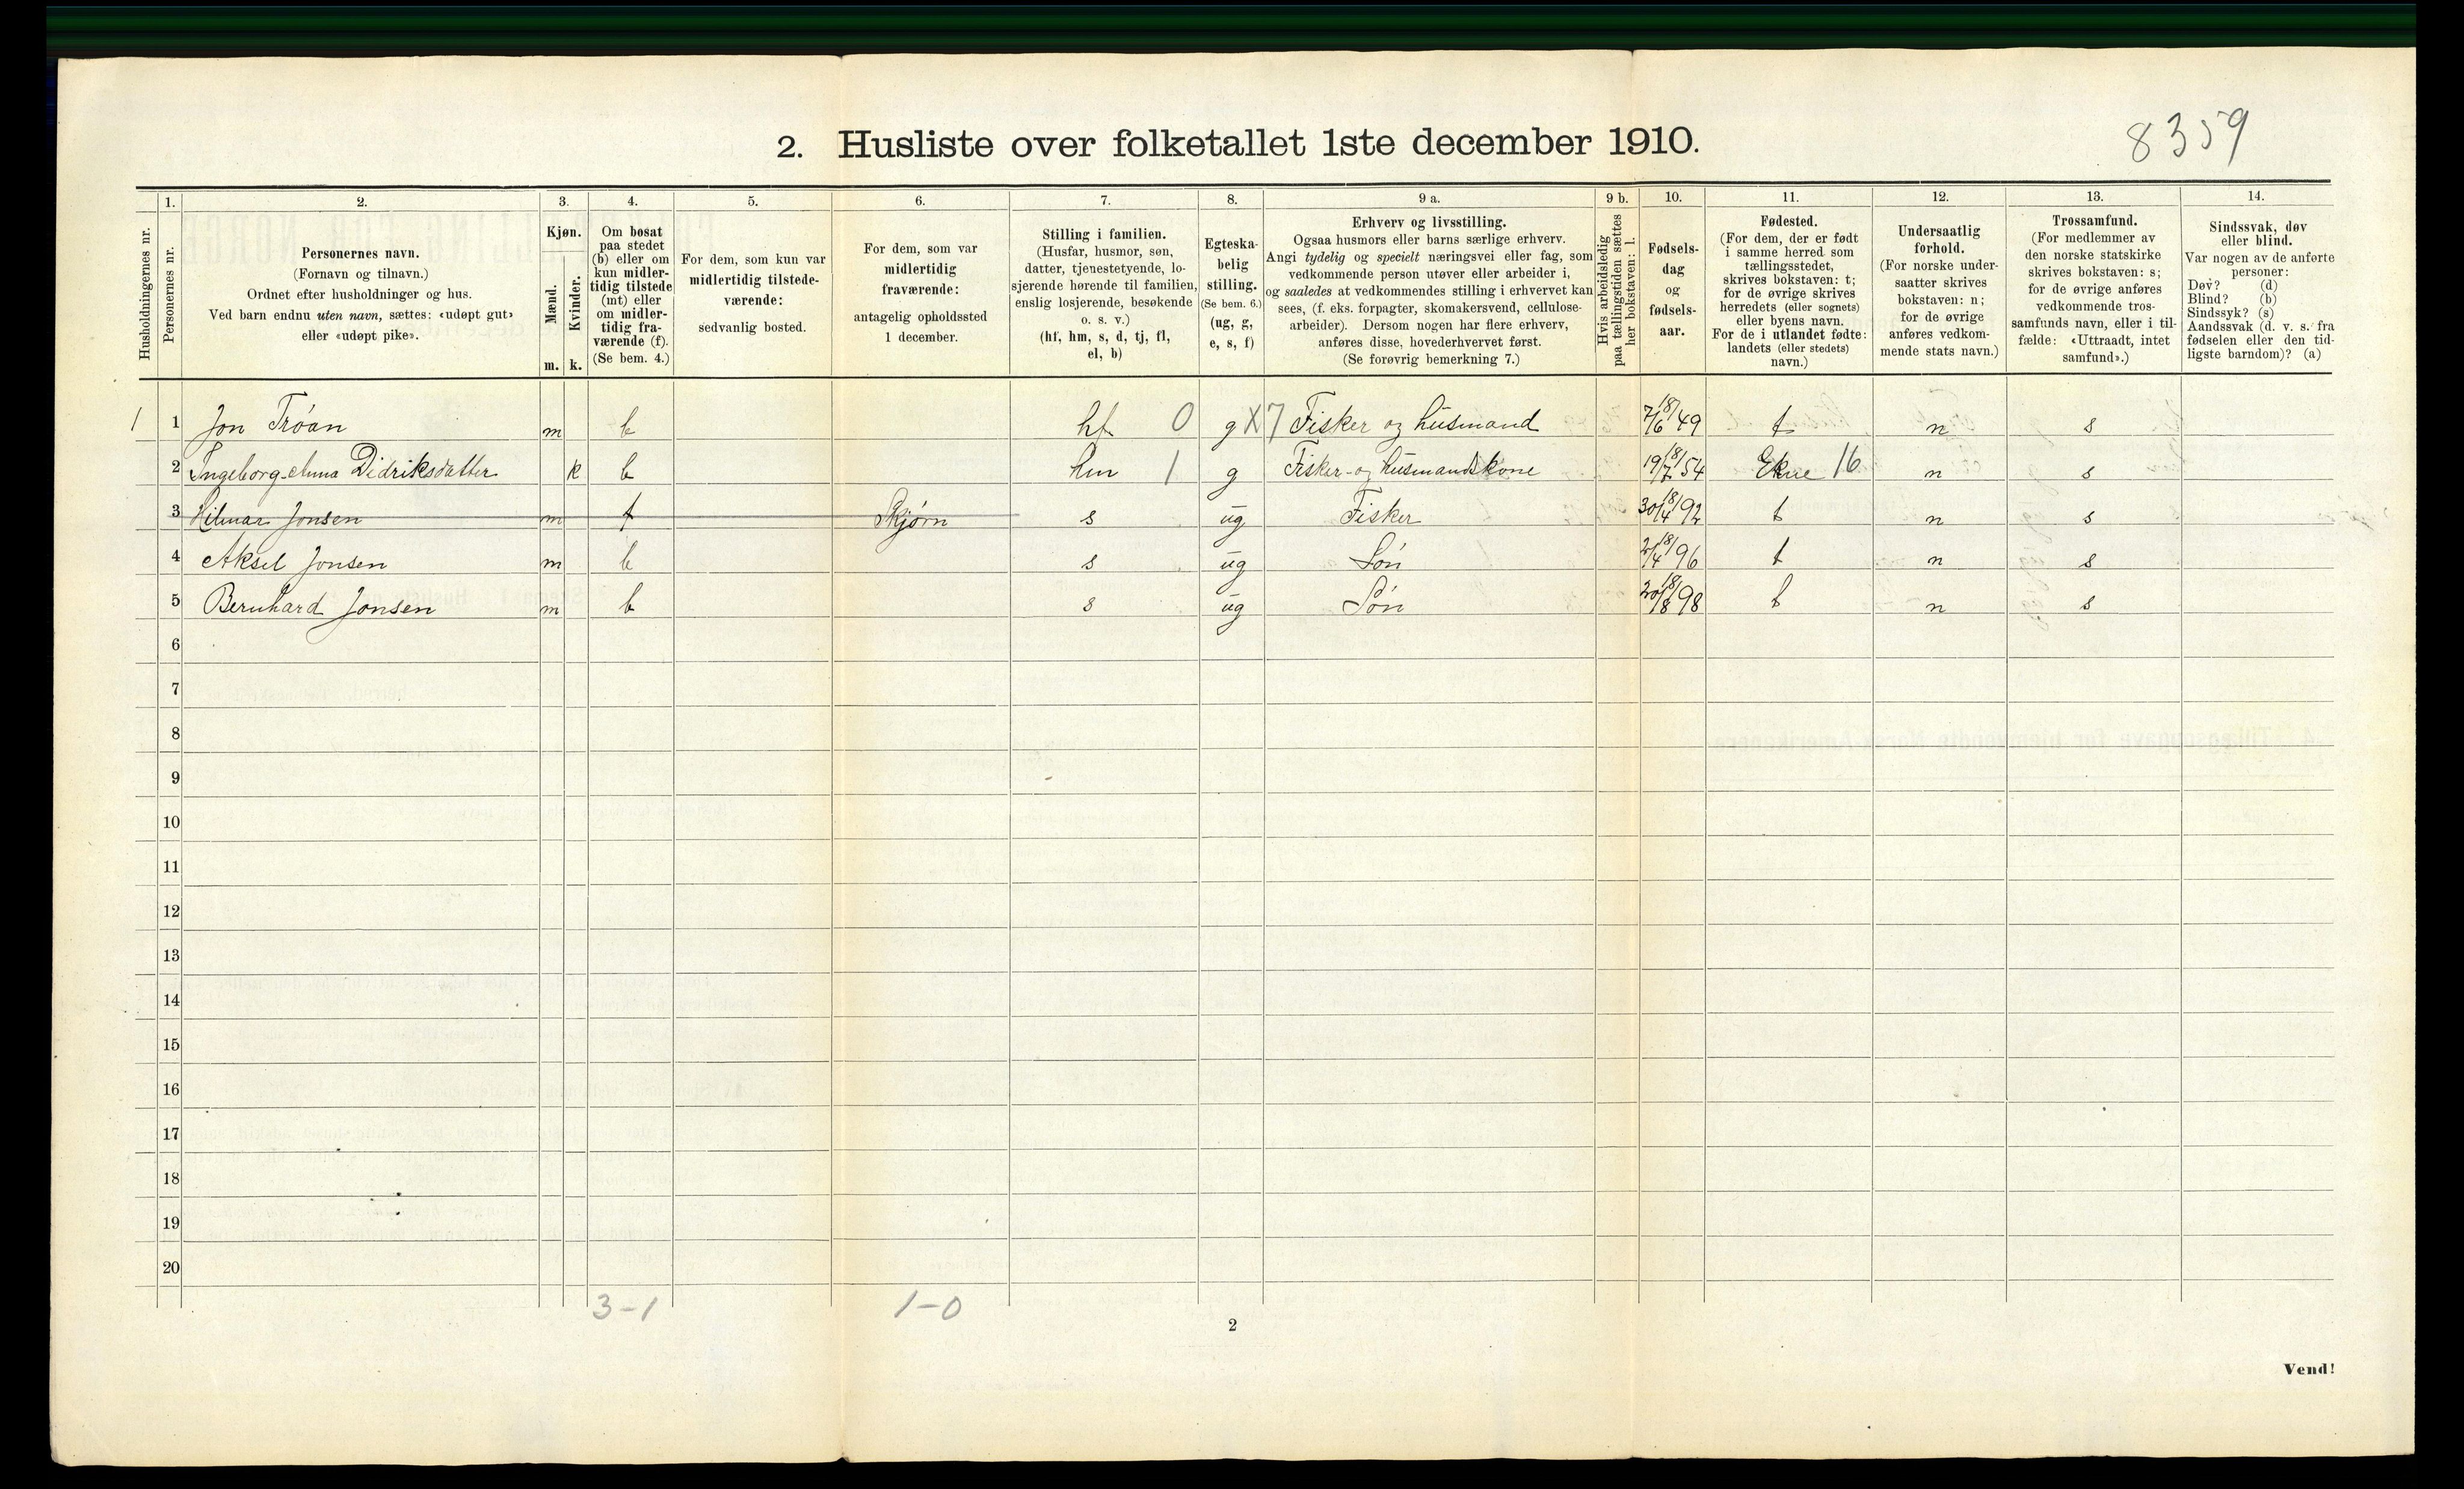 8359
2. Husliste over folketallet 1ste december 1910.
Husholdningernes nr.
1.
Personernes nr.
2.
Personernes navn.
(Fornavn og tilnavn.)
Ordnet efter husholdninger og hus.
Ved barn endnu uten navn, sættes: «udøpt gut»
eller «udøpt pike».
3.
Kjøn.
Mænd.
Kvinder.
m. k.
4.
Om bosat
paa stedet
(b) eller om
kun midler-
tidig tilstede
(mt) eller
om midler-
tidig fra-
værende (f).
(Se bem. 4.)
5.
For dem, som kun var
midlertidig tilstede-
værende:
sedvanlig bosted.
6.
For dem, som var
midlertidig
fraværende:
antagelig opholdssted
1 december.
7.
Stilling i familien.
(Husfar, husmor, søn,
datter, tjenestetyende, lo-
sjerende hørende til familien,
enslig losjerende, besøkende
o. s. v.)
(hf, hm, s, d, tj, fl,
el, b)
8.
Egteska-
belig
stilling.
(Se bem. 6.)
(ug, g,
e, s, f)
9 a.
Erhverv og livsstilling.
Ogsaa husmors eller barns særlige erhverv.
Angi tydelig og specielt næringsvei eller fag, som
vedkommende person utøver eller arbeider i,
og saaledes at vedkommendes stilling i erhvervet kan
sees, (f. eks. forpagter, skomakersvend, cellulose-
arbeider). Dersom nogen har flere erhverv,
anføres disse, hovederhvervet først.
(Se forøvrig bemerkning 7.)
9 b.
Hvis arbeidsledig
paa tællingstiden sættes
her bokstaven: l.
10.
Fødsels-
dag
og
fødsels-
aar.
11.
Fødested.
(For dem, der er født
i samme herred som
tællingsstedet,
skrives bokstaven: t;
for de øvrige skrives
herredets (eller sognets)
eller byens navn.
For de i utlandet fødte:
landets (eller stedets)
navn.)
12.
Undersaatlig
forhold.
(For norske under-
saatter skrives
bokstaven: n;
for de øvrige
anføres vedkom-
mende stats navn.)
13.
Trossamfund.
(For medlemmer av
den norske statskirke
skrives bokstaven: s;
for de øvrige anføres
vedkommende tros-
samfunds navn, eller i til-
fælde: «Uttraadt, intet
samfund».)
14.
Sindssvak, døv
eller blind.
Var nogen av de anførte
personer:
Døv? (d)
Blind? (b)
Sindssyk? (s)
Aandssvak (d. v. s. fra
fødselen eller den tid-
ligste barndom)? (a)
1 1 Jon Tróan m b hf 0 g X 7 Fisker og husmand 7/6 18/49 t n s
2 Ingeborg Anna Didriksdatter k b hm 1 g Fisker- og husmandskone 19/7 18/54 Ekne 16 n s
3 Hilmar Jonsen m f Skjørn s ug Fisker 30/4 18/92 t n s
4 Aksel Jonsen m b s ug Søn 2/4 18/96 t n s
5 Bernhard Jonsen m b s ug Søn 20/8 18/98 t n s
6
7
8
9
10
11
12
13
14
15
16
17
18
19
20
3-1 1-0
2
Vend!